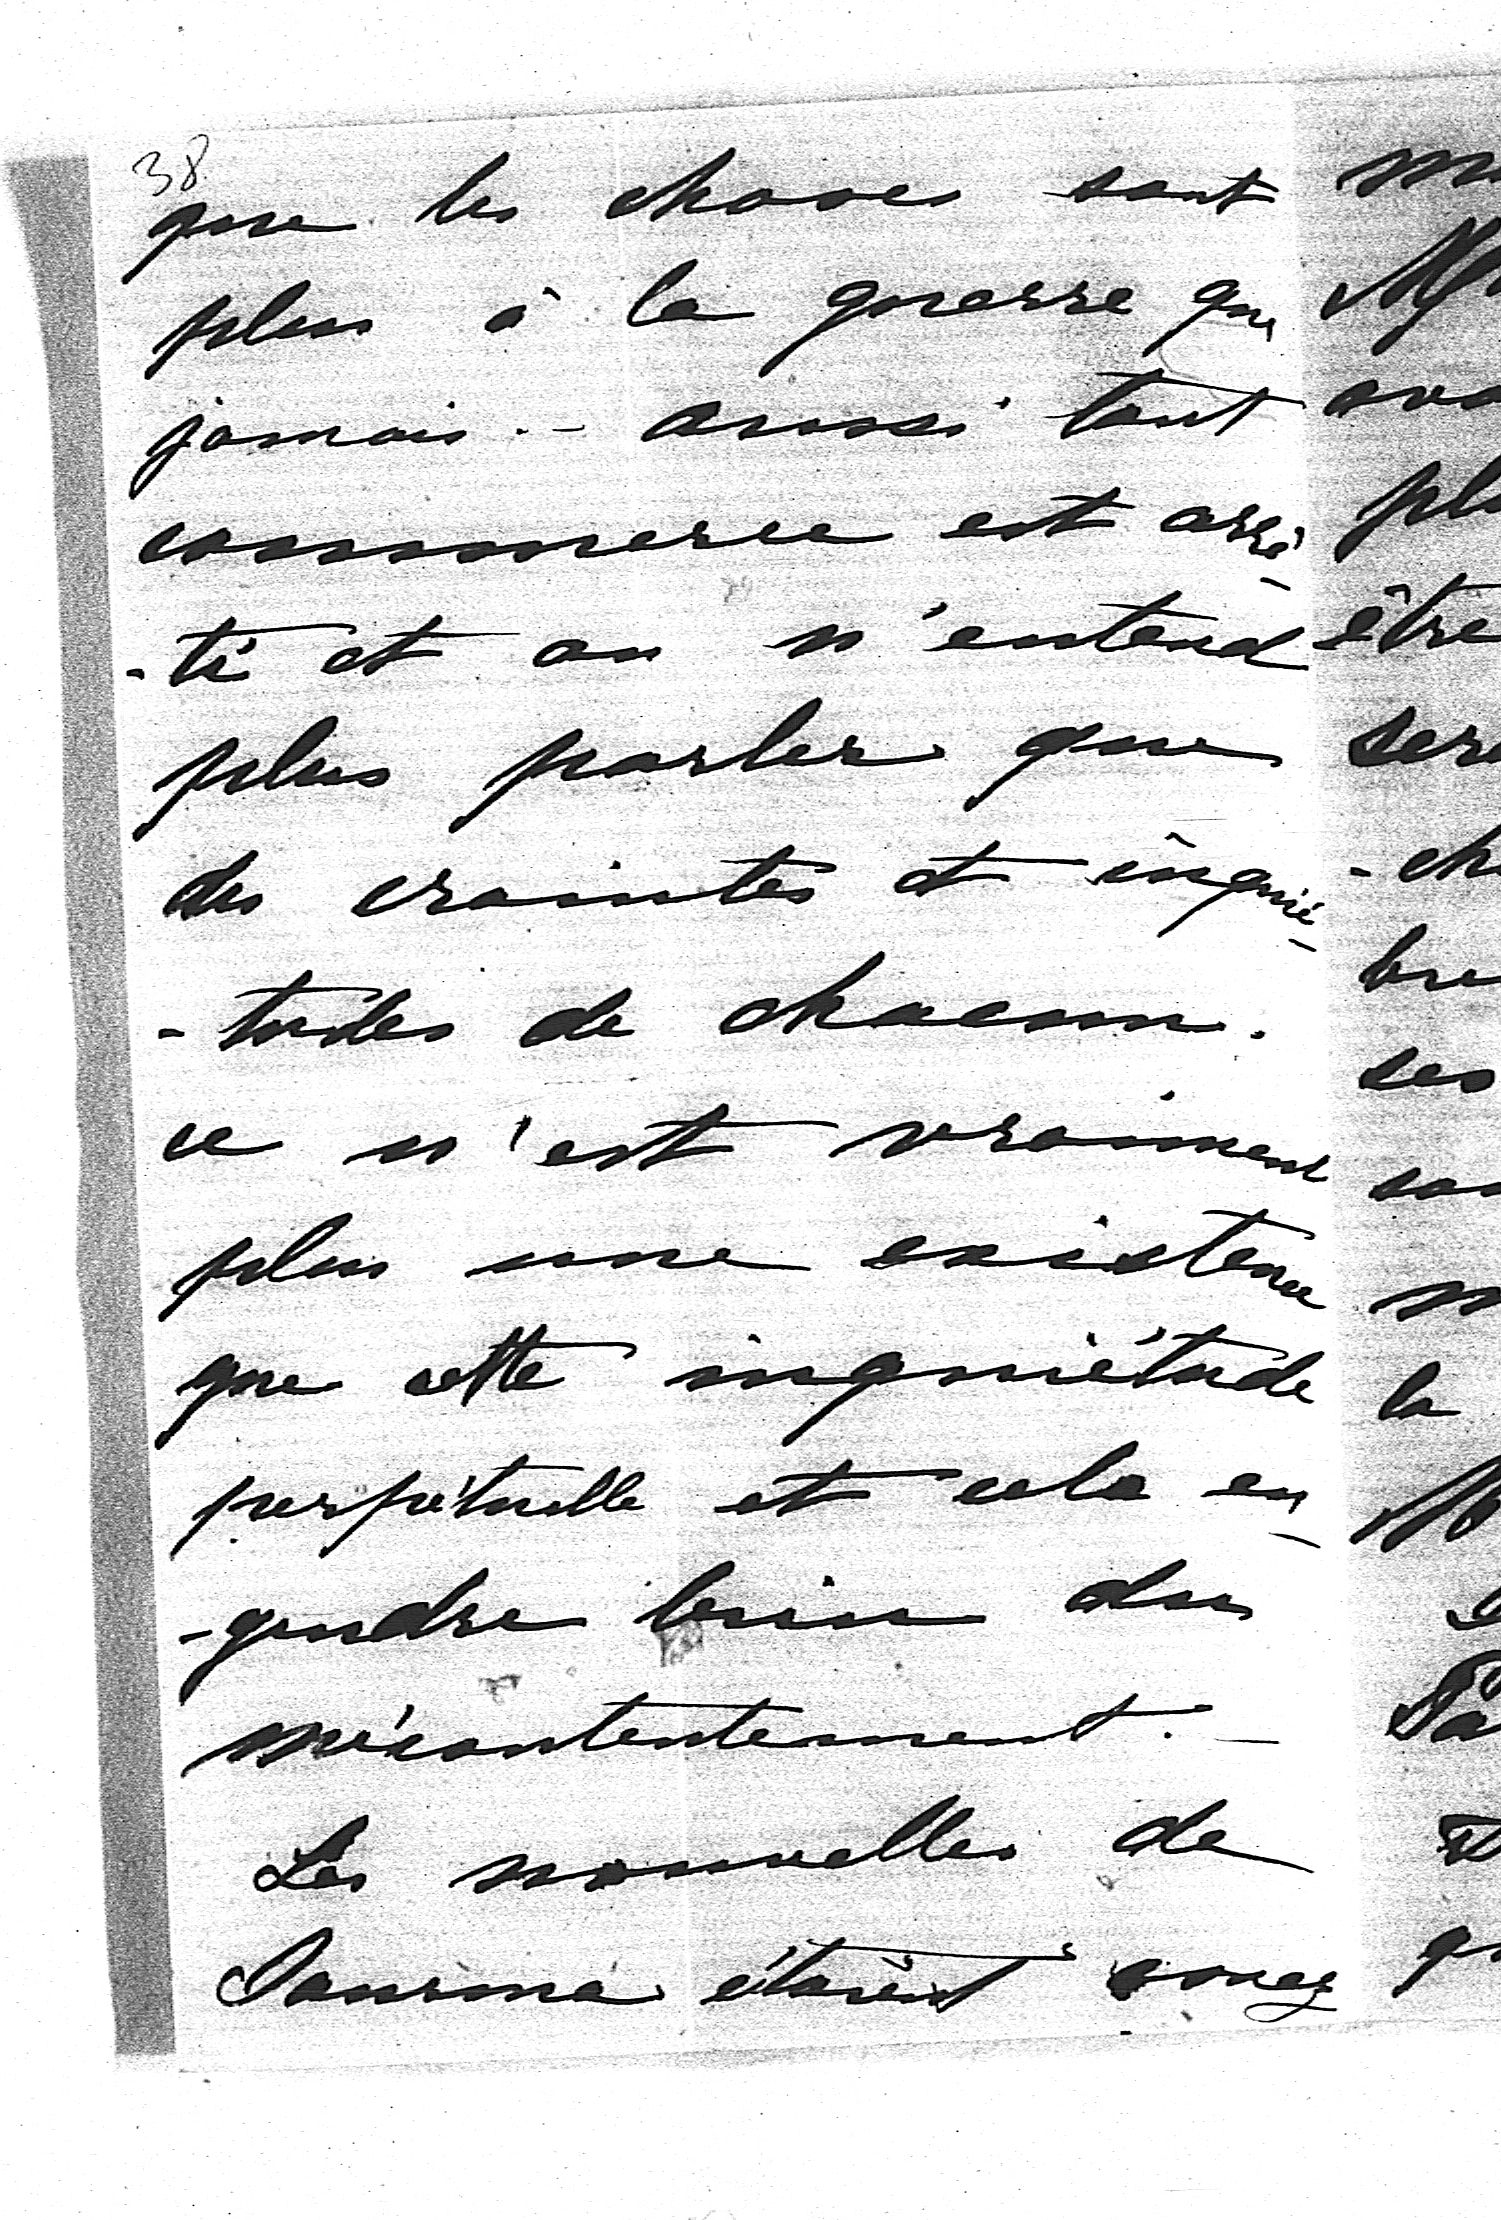 38
que les choses sont
plus à la guerre que
jamais. - aussi tout
commerce est arrê-
-té et on n'entend
plus parler que
des craintes et inquié-
-tudes de chacun.
ce n'est vraiment
plus une existence
que cette inquiétude
perpétuelle et cela en-
-gendre bien du
mécontentement. -
Les nouvelles de
étaient assez
être
ses
la